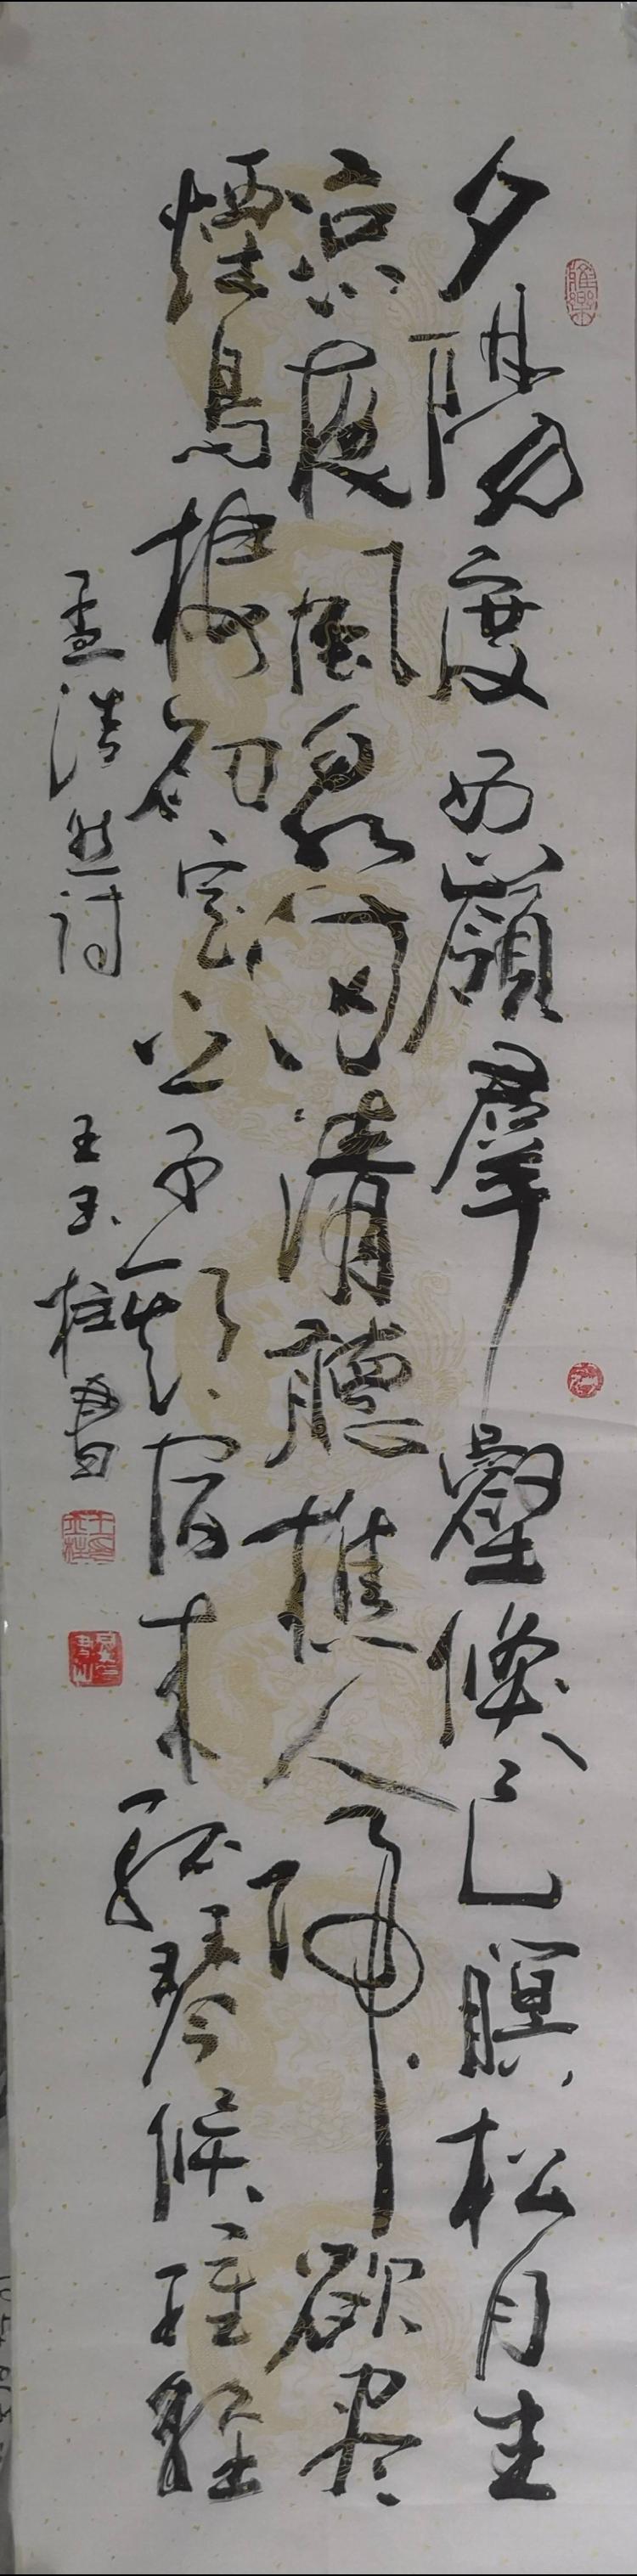 夕陽度西嶺羣壑倏已暝松月生
凉夜風泉滿清聽樵人歸欲尽
煙鳥棲初定之子期宿来孤琴候
孟浩然詩
王玉柱書